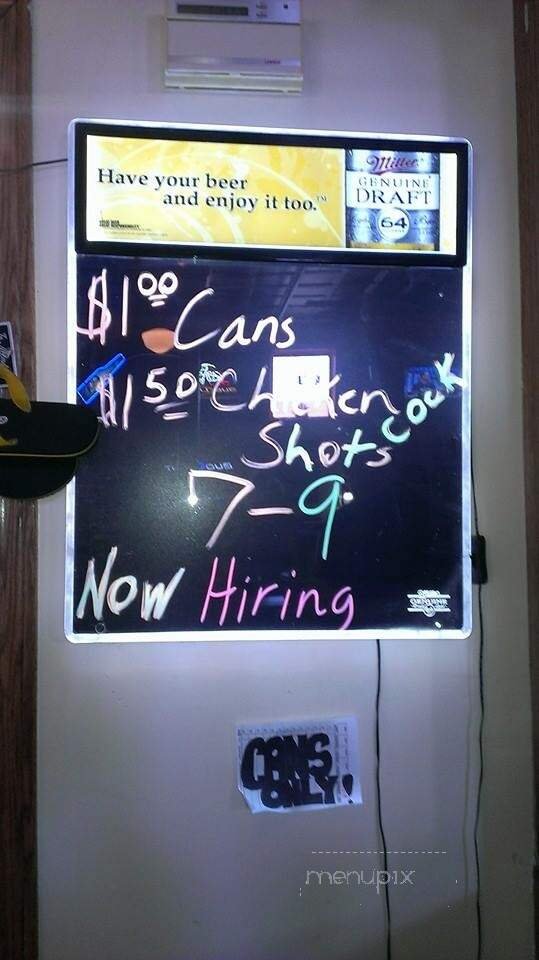 Have your beer
and enjoy it too.™
Miller
GENUINE
DRAFT
64
$1.00 Cans
$1.50 Chicken
COCK
Shots
7-9
Now Hiring
GENUINE
CANS
ONLY!
menupix